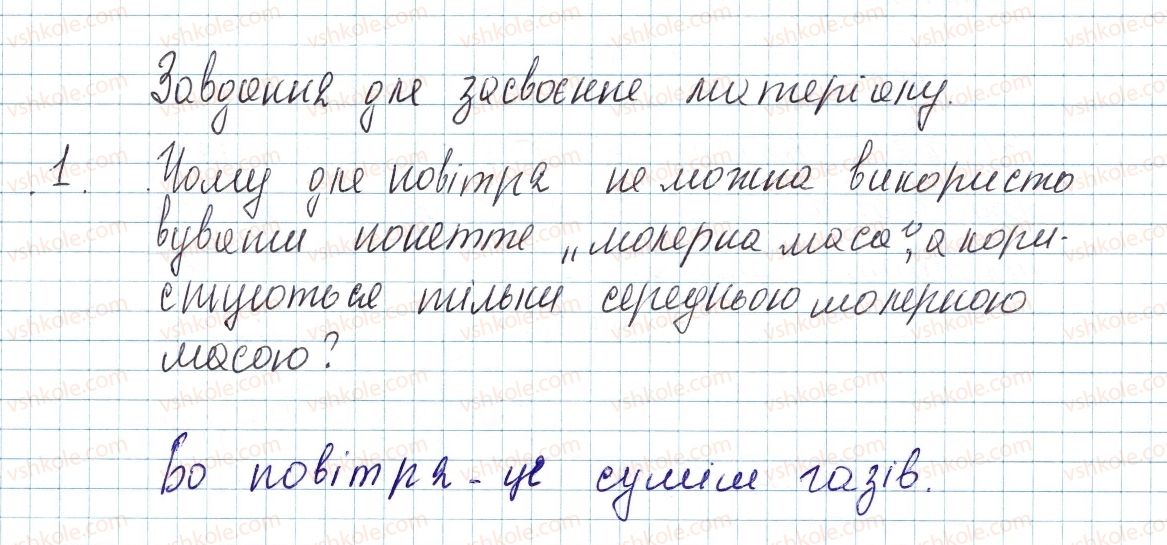 Завдання для засвоєння матеріалу.
1. Чому для повітря не можна використо
вувати поняття „молярна маса", а кори-
стуються тільки середньою молярною
масою?
Бо повітря - це суміш газів.